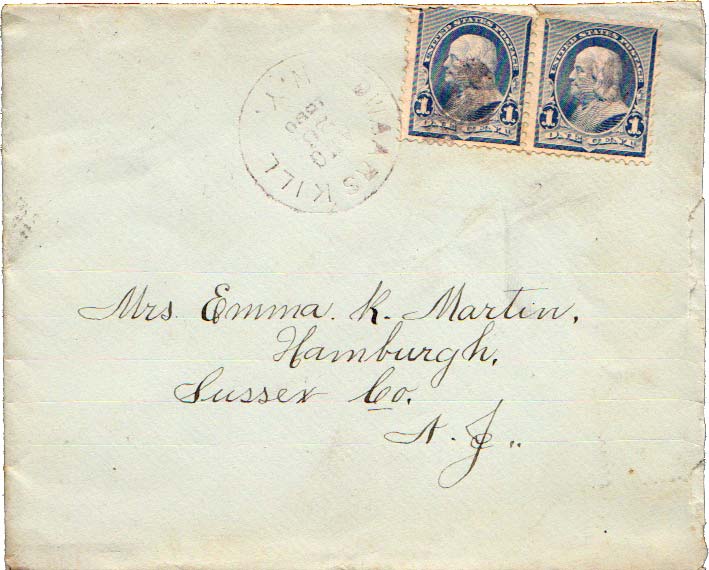 UNITED STATES POSTAGE
1 1
ONE CENT
UNITED STATES POSTAGE
1 1
ONE CENT
KILL N.Y.
Mrs. Emma. K. Martin,
Hamburgh,
Sussex Co.
N. J..